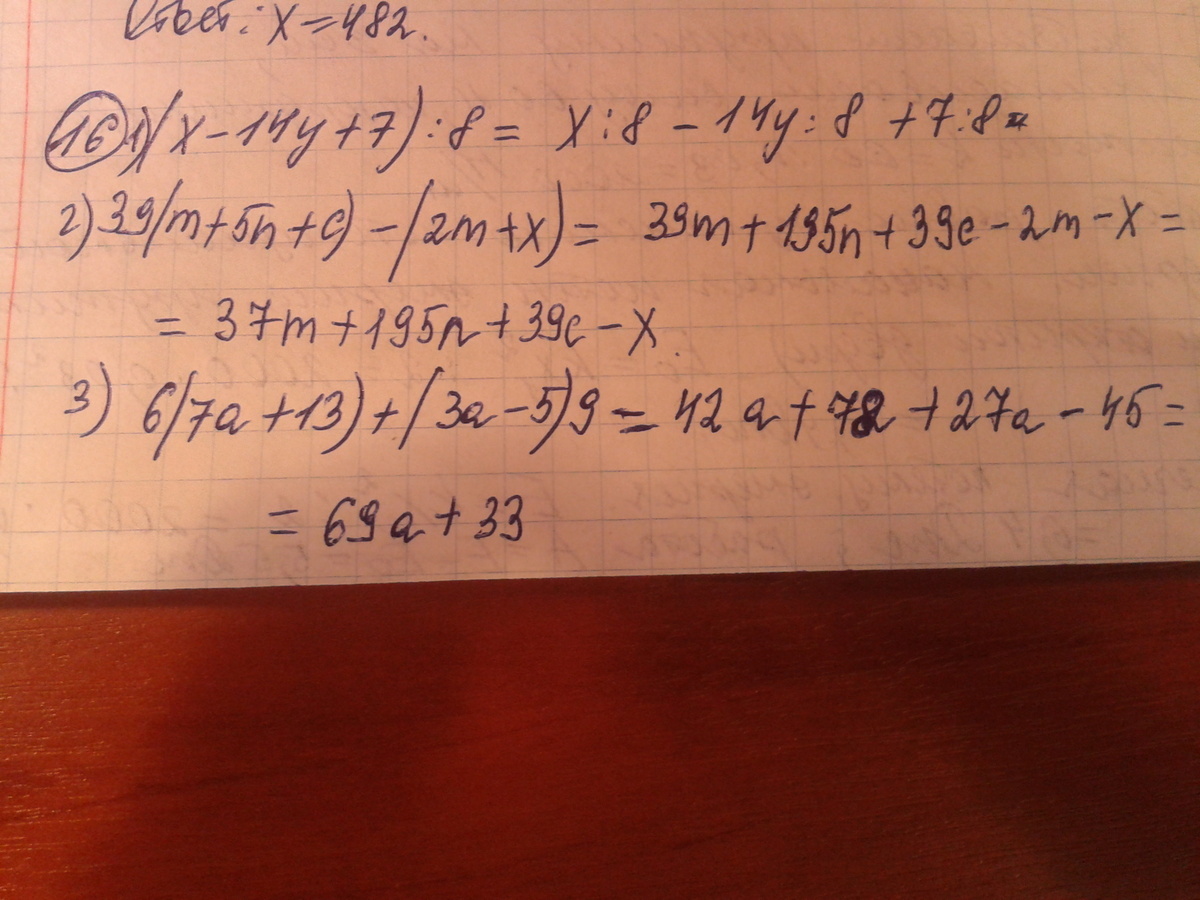 Ответ: x = 482.
16 1) (x - 14y + 7) : 8 = x : 8 - 14y : 8 + 7 : 8
2) 39(m + 5n + c) - (2m + x) = 39m + 195n + 39c - 2m - x =
= 37m + 195n + 39c - x.
3) 6(7a + 13) + (3a - 5)9 = 42a + 78 + 27a - 45 =
= 69a + 33